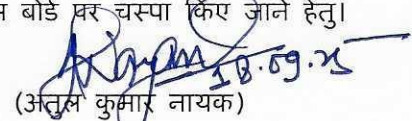 बोर्ड पर चस्पा किए जाने हेतु।
18.09.25
(अतुल कुमार नायक)